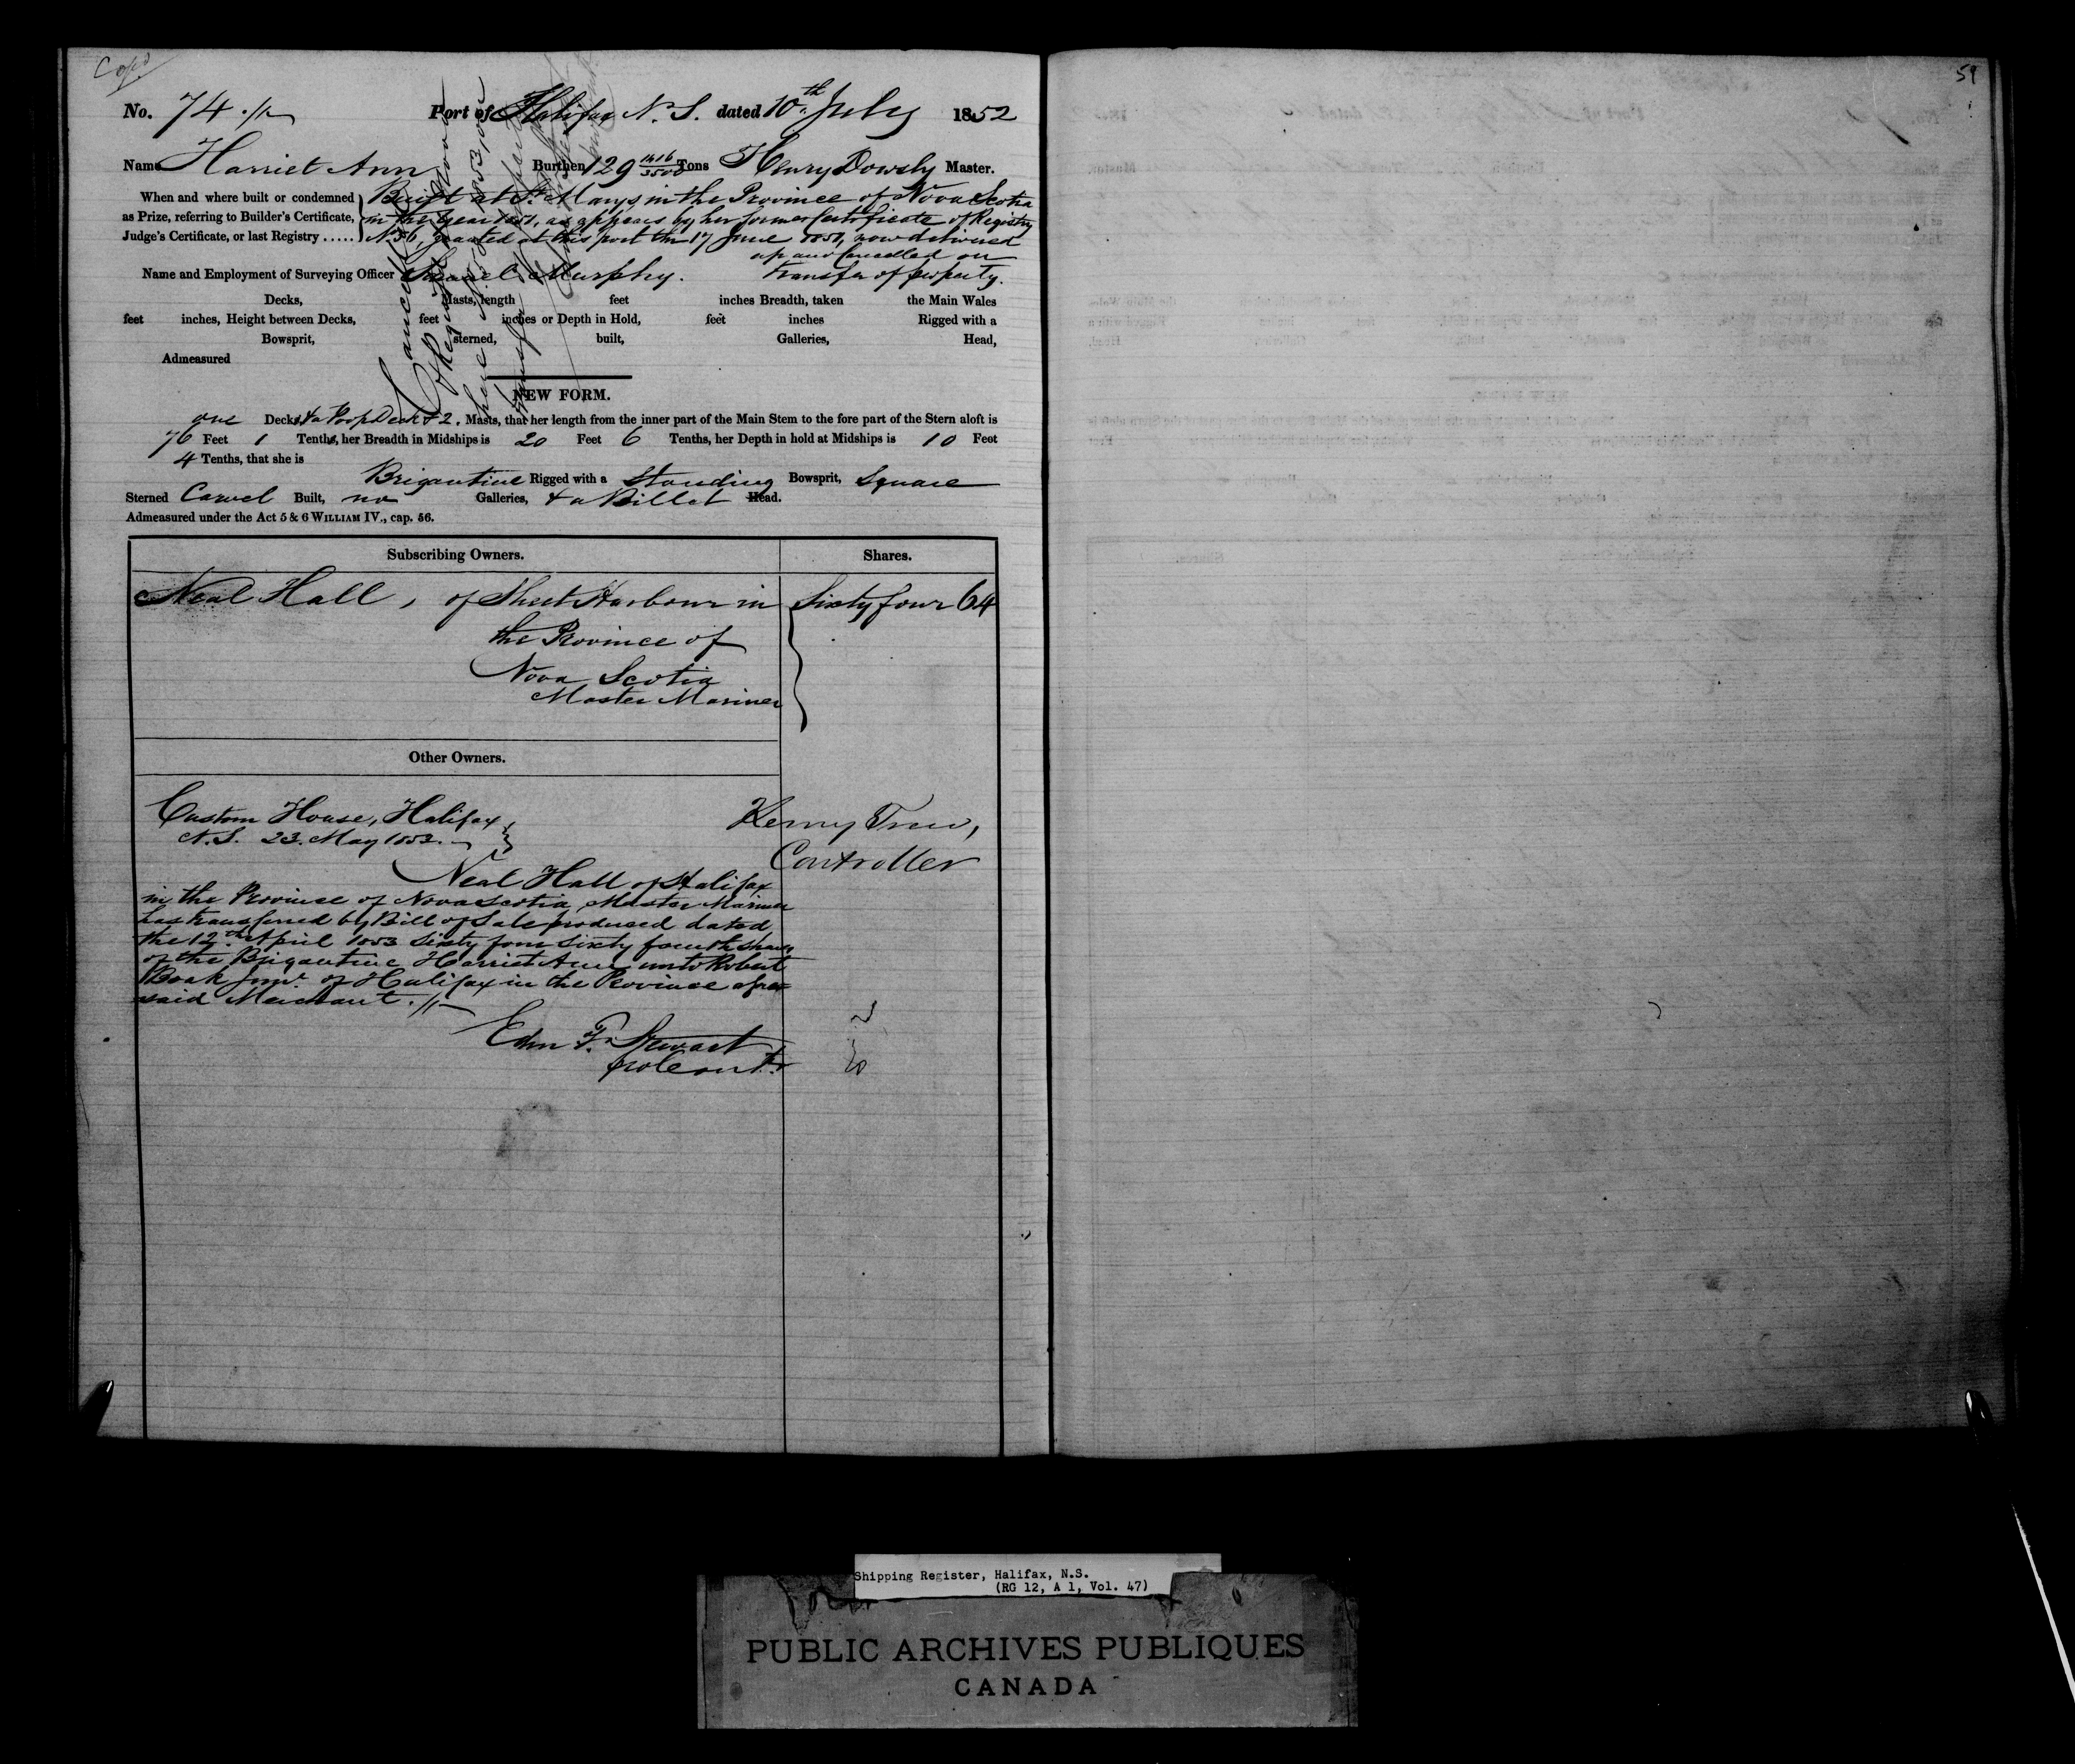 Cop'd
59
No. 74 Port of Halifax N. S. dated 10th July 1852
Name Harriet Ann Burthen 129 1416/3500 Tons Henry Dowsly Master.
When and where built or condemned as Prize, referring to Builder's Certificate, Judge's Certificate, or last Registry .....
Built at St. Marys in the Province of Nova Scotia
in the year 1851, as appears by her former Certificate of Registry
No. 56, granted at this port the 17 June 1851, now delivered
up and Cancelled on
transfer of property.
Name and Employment of Surveying Officer Samuel Murphy.
Decks, Masts, length feet inches Breadth, taken the Main Wales
feet inches, Height between Decks, feet inches or Depth in Hold, feet inches Rigged with a
Bowsprit, sterned, built, Galleries, Head,
Admeasured
Cancelled
&
here No. 1853,
transfer
NEW FORM.
one Decks, & a Poop Deck & 2. Masts, that her length from the inner part of the Main Stem to the fore part of the Stern aloft is
76 Feet 1 Tenths, her Breadth in Midships is 20 Feet 6 Tenths, her Depth in hold at Midships is 10 Feet
4 Tenths, that she is
Brigantine Rigged with a Standing Bowsprit, Square
Sterned Carvel Built, no Galleries, & a Billet Head.
Admeasured under the Act 5 & 6 WILLIAM IV., cap. 56.
Subscribing Owners. Shares.
Neal Hall, of Sheet Harbour in Sixty four 64
the Province of
Nova Scotia
Master Mariner
Other Owners.
Custom House, Halifax
N.S. 23. May 1853.
Henry Trew,
Controller
Neal Hall of Halifax
in the Province of Nova Scotia Master Mariner
has transferred by Bill of Sale produced dated
the 12th April 1853 Sixty four Sixty fourth Shares
of the Brigantine Harriet Ann unto Robert
Boak Junr. of Halifax in the Province afore
said Merchant.
Edm F. Stewart
pro Contr.
Shipping Register, Halifax, N.S.
(RG 12, A 1, Vol. 47)
PUBLIC ARCHIVES PUBLIQUES
CANADA